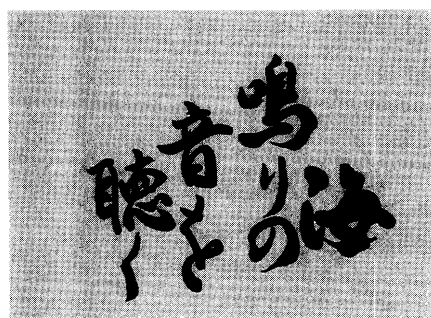 海
鳴りの
音を
聴く